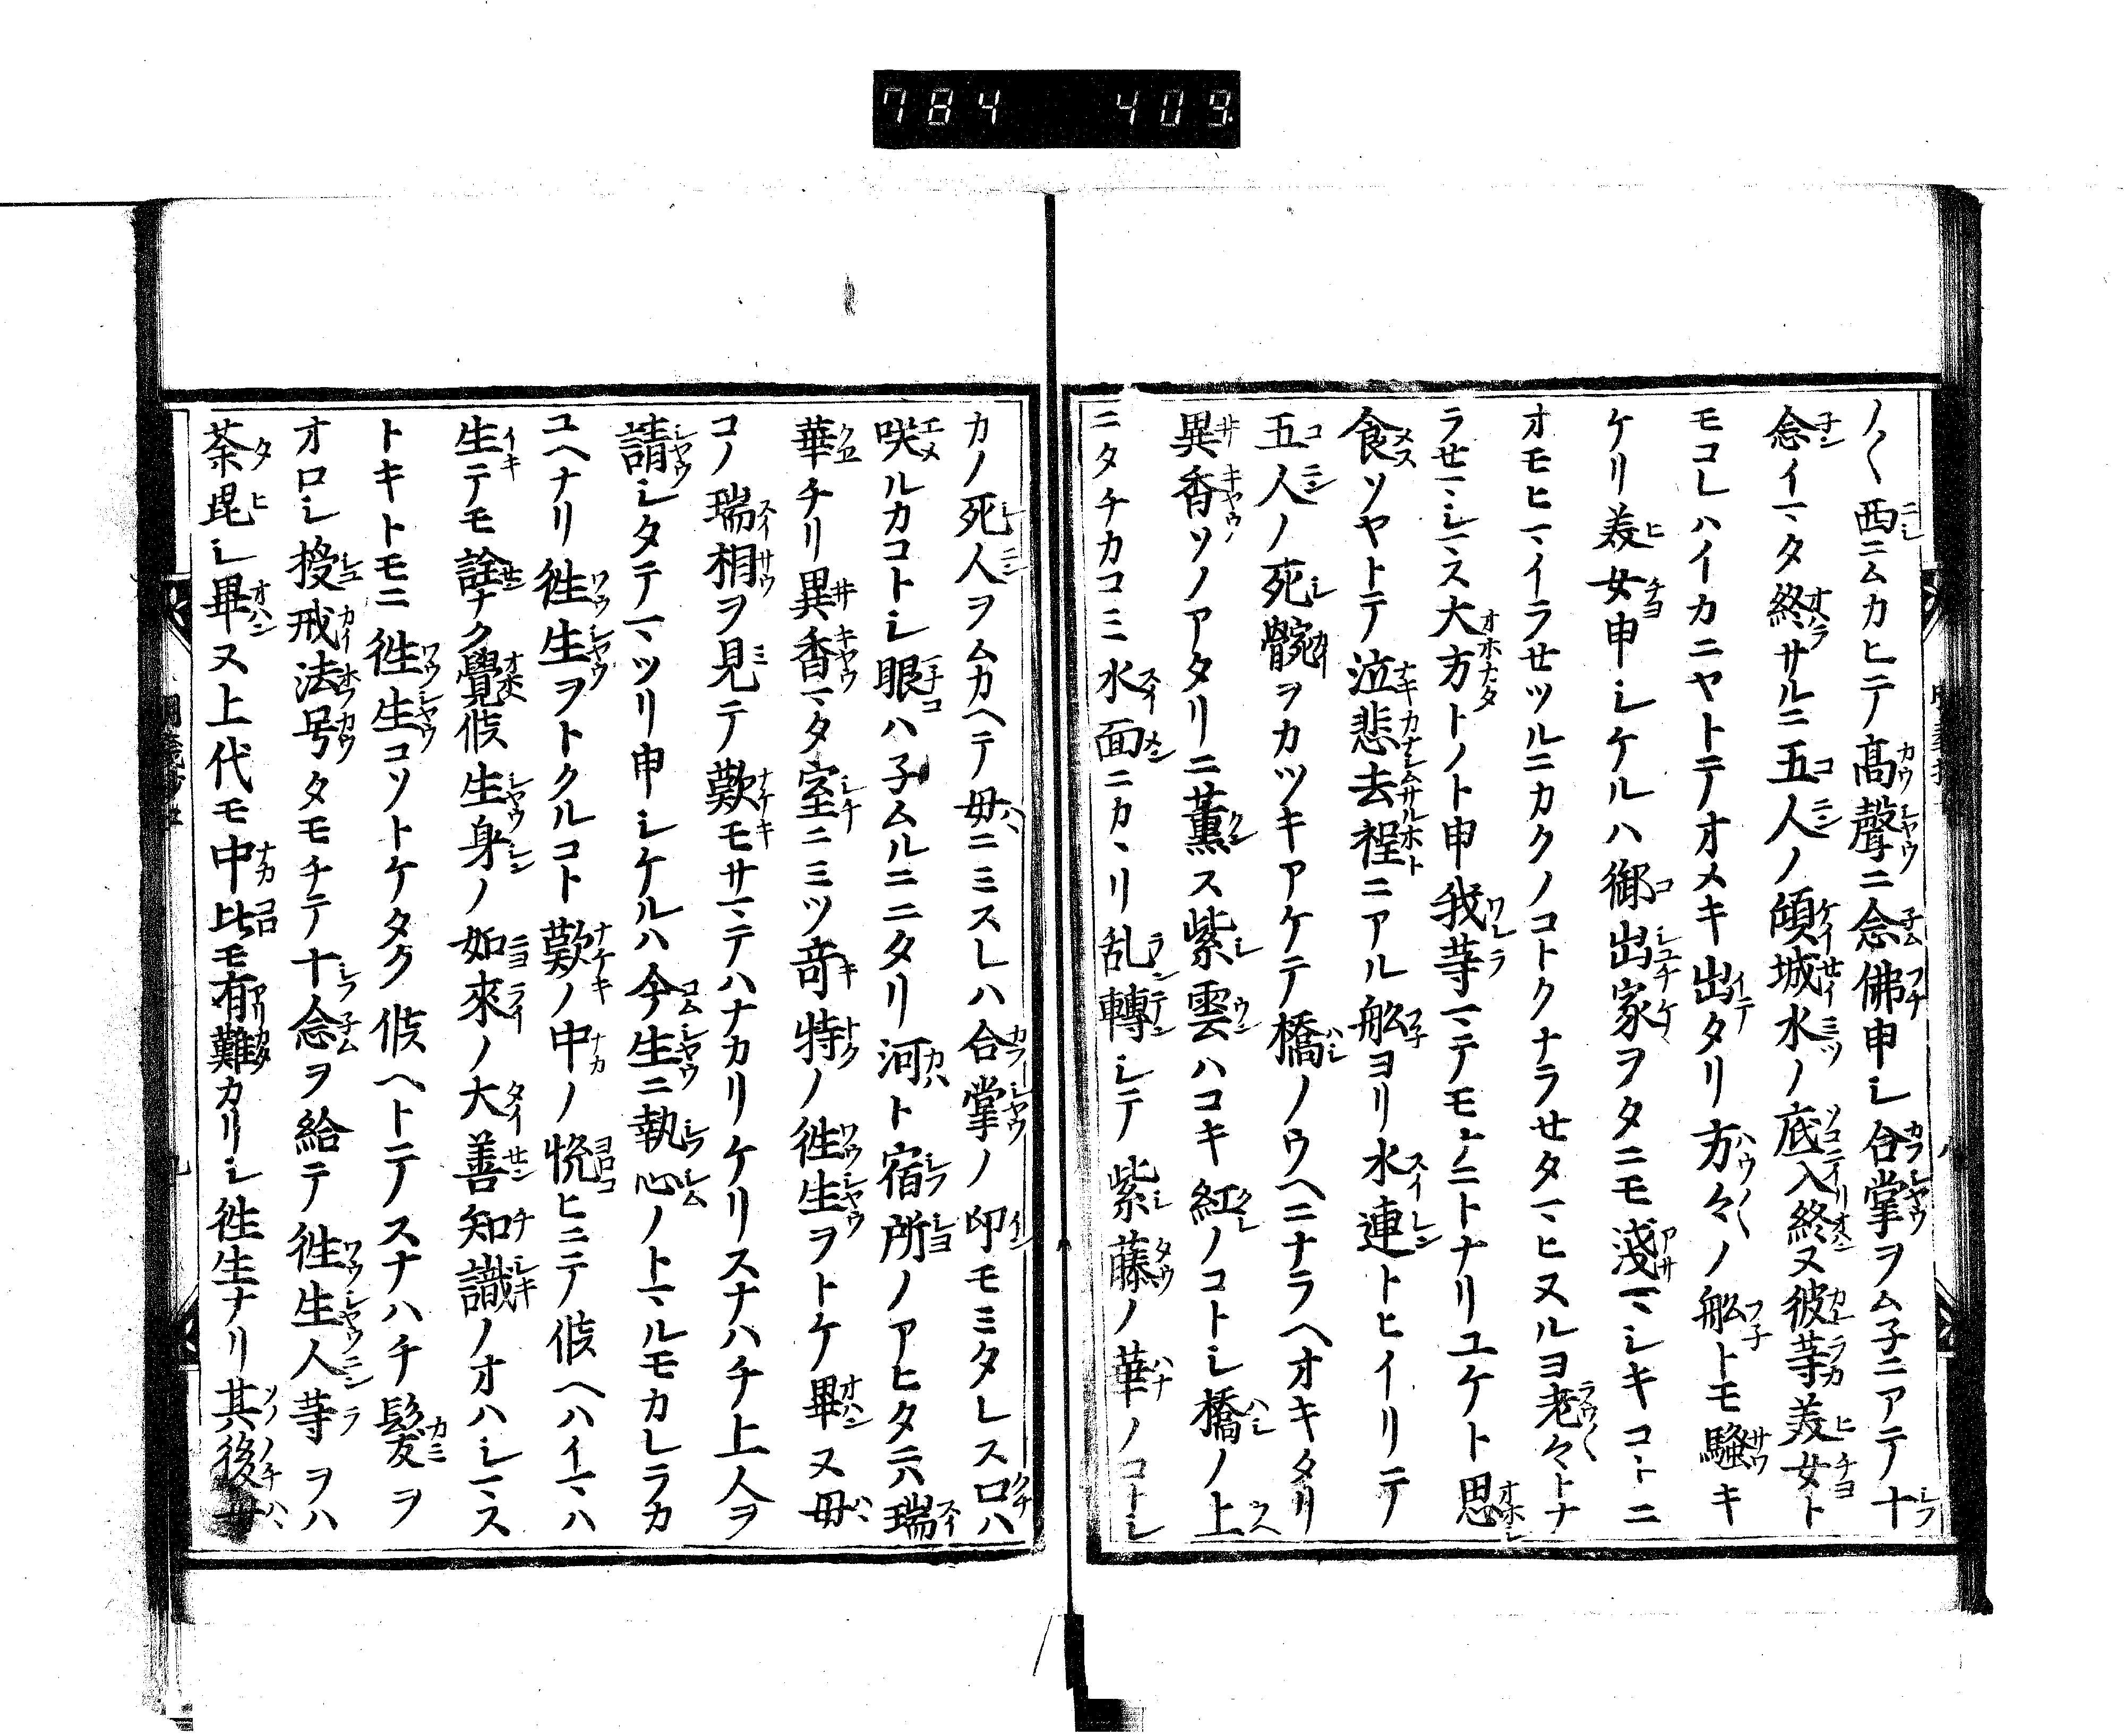 784 409
ノ〱西ニムカヒテ髙聲ニ念佛申シ合掌ヲムネニアテ十
念イマタ終サルニ五人ノ傾城水ノ底入終ヌ彼等美女ト
モコレハイカニヤトテオメキ出タリ方々ノ舩トモ騒キ
ケリ美女申シケルハ御出家ヲタニモ淺マシキコトニ
オモヒマイラセツルニカクノコトクナラセタマヒヌルヨ老々トナ
ラセマシマス大方トノト申我等マテモナニトナリユケト思
食ソヤトテ泣悲去程ニアル舩ヨリ水連トヒイリテ
五人ノ死骸ヲカツキアケテ橋ノウヘニナラヘオキタリ
異香ソノアタリニ薫ス紫雲ハコキ紅ノコトシ橋ノ上
ニタチカコミ水面ニカヽリ乱轉シテ紫藤ノ華ノコトシ
カノ死人ヲムカヘテ母ニミスレハ合掌ノ印モミタレス口ハ
咲ルカコトシ眼ハ子ムルニニタリ河ト宿所ノアヒタニハ瑞
華チリ異香マタ室ニミツ竒特ノ徃生ヲトケ畢ヌ母
コノ瑞相ヲ見テ歎モサマテハナカリケリスナハチ上人ヲ
請シタテマツリ申シケルハ今生ニ執心ノトマルモカレラカ
ユヘナリ徃生ヲトクルコト歎ノ中ノ悦ヒミテ候ヘハイマハ
生テモ詮ナク覺候生身ノ如來ノ大善知識ノオハシマス
トキトモニ徃生コソトケタク候ヘトテスナハチ髮ヲ
オロシ授戒法号タモチテ十念ヲ給テ徃生人等ヲハ
荼毘シ畢ヌ上代モ中比モ有難カリシ徃生ナリ其後母